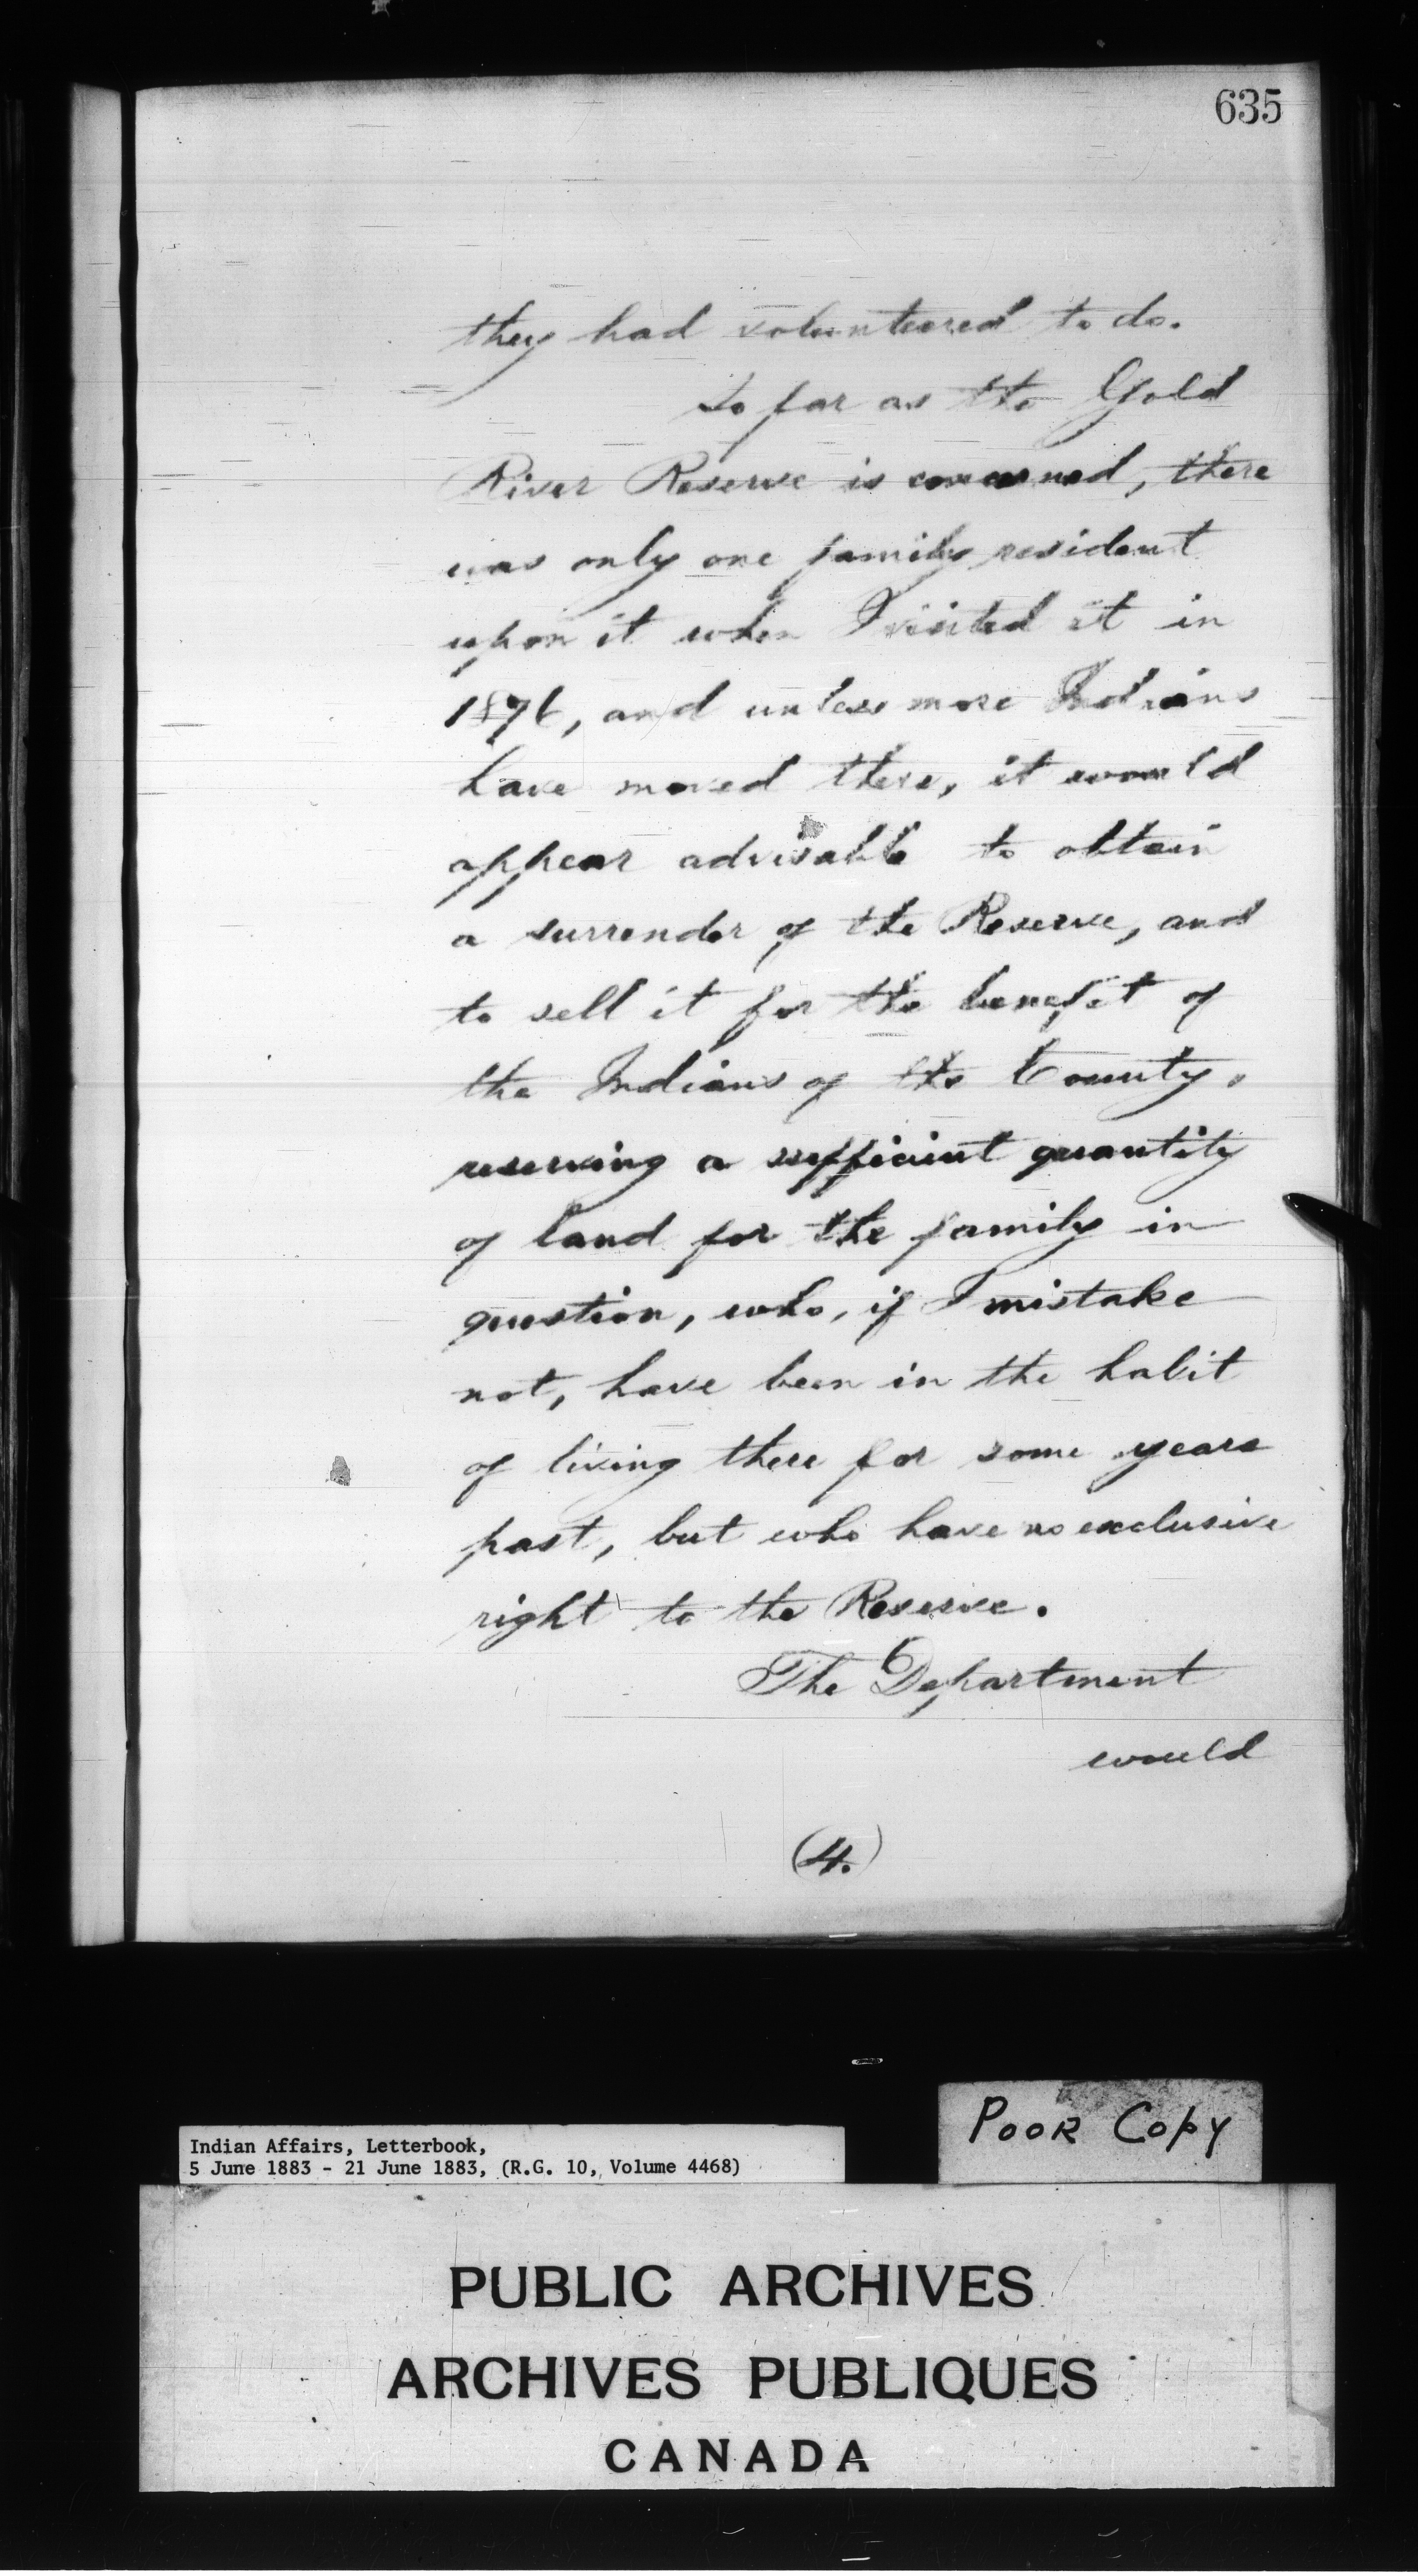 635
they had volunteered to do.
So far as the Gold
River Reserve is concerned, there
was only one family resident
upon it when I visited it in
1876, and unless more Indians
have moved there, it would
appear advisable to obtain
a surrender of the Reserve, and
to sell it for the benefit of
the Indians of the County,
reserving a sufficient quantity
of land for the family in
question, who, if I mistake
not, have been in the habit
of living there for some years
past, but who have no exclusive
right to the Reserve.
The Department
would
(4.)
POOR COPY
Indian Affairs, Letterbook,
5 June 1883 - 21 June 1883, (R.G. 10, Volume 4468)
PUBLIC ARCHIVES
ARCHIVES PUBLIQUES
CANADA